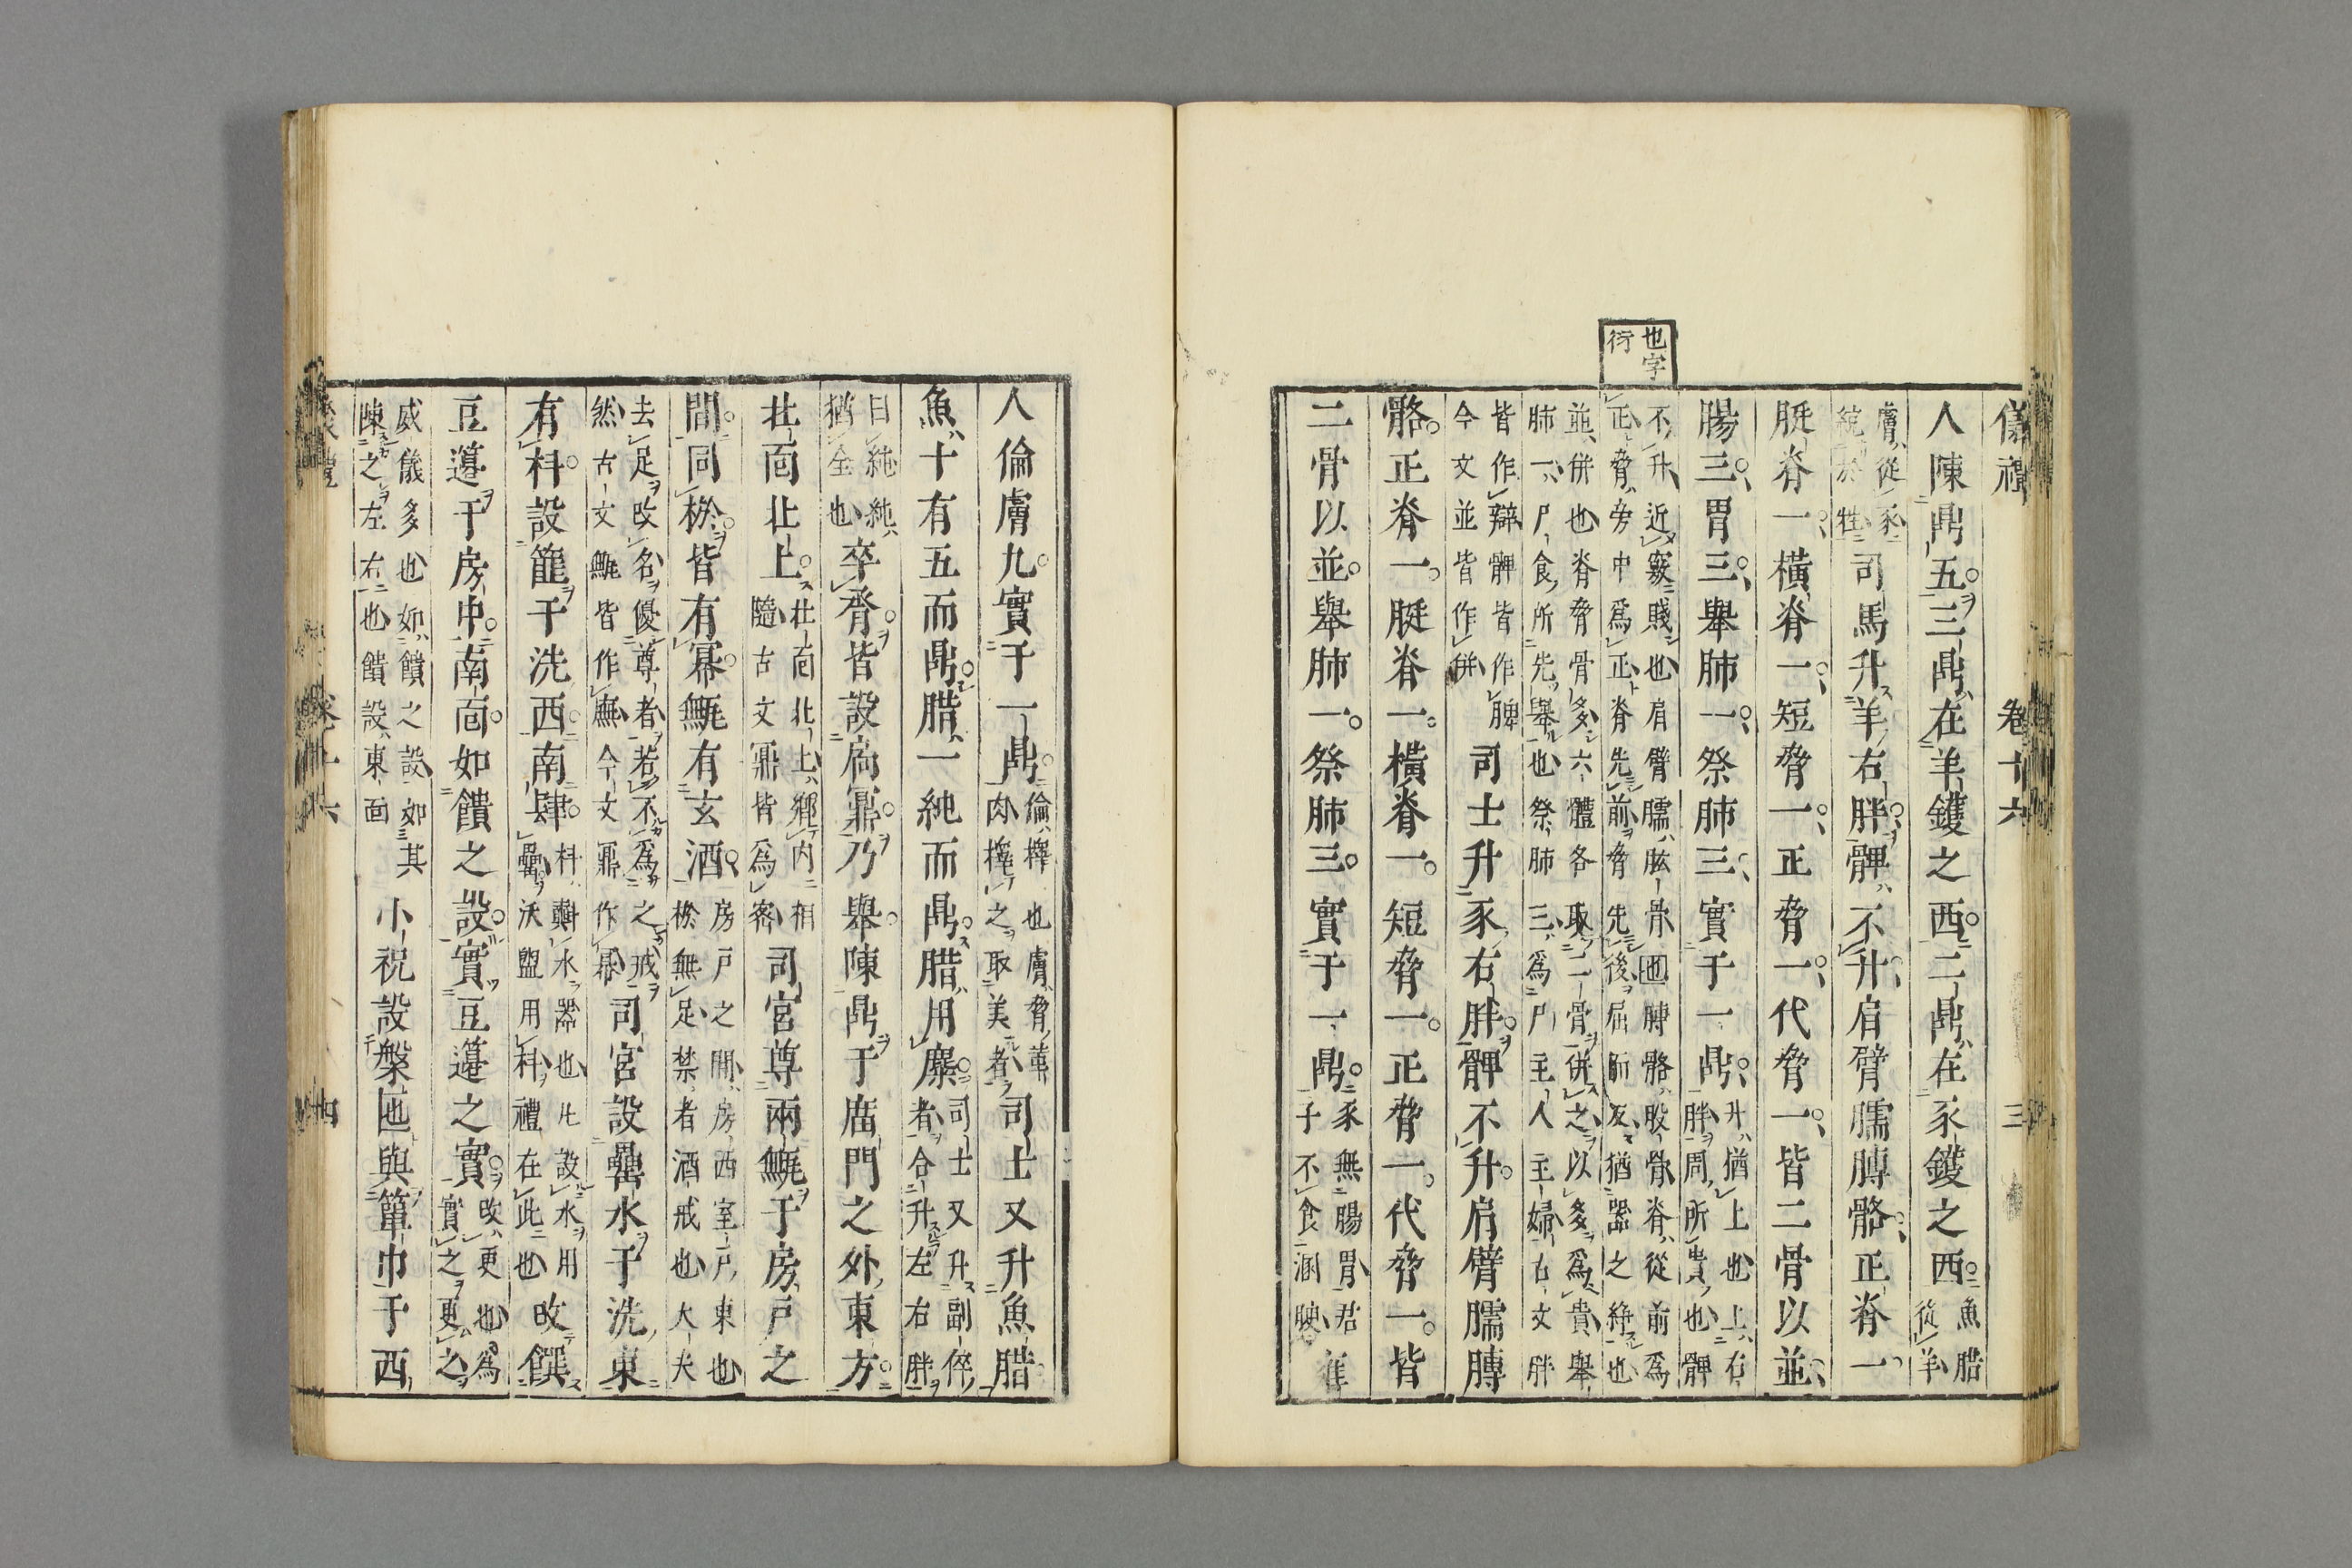 儀禮 卷十六 三
人陳鼎五三鼎在羊鑊之西二鼎在豕鑊之西魚腊從羊
膚從豕統於牲司馬升羊右胖髀不升肩臂臑膊骼正脊一
脡脊一橫脊一短脅一正脅一代脅一皆二骨以並
腸三胃三舉肺一祭肺三實于一鼎升猶上也上右胖周所貴也髀
不升近竅賤也肩臂臑肱骨也膊骼股骨脊從前爲
正脅旁中爲正脊先前脅先後屈而反猶器之綷也
並併也脊脅骨多六體各取二骨併之以多爲貴舉
肺一尸食所先舉也祭肺三爲尸主人主婦古文胖
皆作辯髀皆作脾今文並皆作併司士升豕右胖髀不升肩臂臑膊
骼正脊一脡脊一橫脊一短脅一正脅一代脅一皆
二骨以並舉肺一祭肺三實于一鼎豕無腸胃君子不食溷腴
也字衍
雍
人倫膚九實于一鼎倫擇也膚脅革肉擇之取美者司士又升魚腊
魚十有五而鼎腊一純而鼎腊用麋司士又升副倅者合升左右胖
曰純純猶全也卒脀皆設扃鼏乃舉陳鼎于庿門之外東方
北面北上北面北上鄉內相隨古文鼏皆爲密司宮尊兩甒于房戶之
間同棜皆有冪甒有玄酒房戶之間房西室戶東也棜無足禁者酒戒也大夫
去足改名優尊者若不爲之戒然古文甒皆作廡今文鼏作冪司宮設罍水于洗東
有枓設篚于洗西南肆枓㪺水器也凡設水用罍沃盥用枓禮在此也改饌
豆籩于房中南面如饋之設實豆籩之實改更也爲實之更之
威儀多也如饋之設如其陳之左右也饋設東面小祝設槃匜與簞巾于西